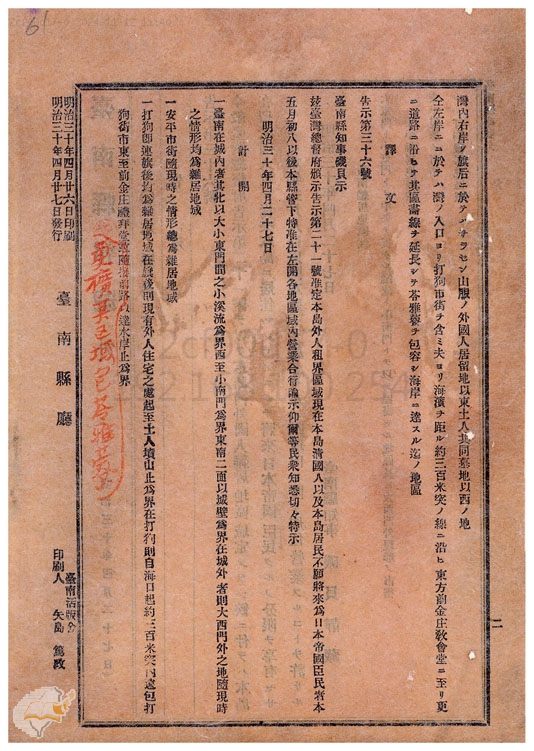 61
灣内右岸ノ旗后ニ於テハサラセン山腹ノ外國人居留地以東土人共同墓地以西ノ地
仝左岸ニ於テハ灣ノ入口ヨリ打狗市街ヲ含ミ夫ヨリ海濱ヲ距ル約三百米突ノ線ニ沿ヒ東方前金庄敎會堂ニ至リ更
ニ道路ニ沿ヒテ其區劃線ヲ延長シテ苓雅藔ヲ包容シ海岸ニ達スル迄ノ地區
譯文
告示第三十六號
臺南縣知事磯貝示
玆臺灣總督府頒示告示第二十一號准定本島外人租界區域現在本島清國人以及本島居民不願將來爲日本帝國臣民者本
五月初八以後本縣管下特准在左開各地區域內營業合行諭示仰爾等民衆知悉切々特示
明治三十年四月二十七日
計開
一臺南在城內者其北以大小東門間之小溪流爲界西至小南門爲界東南二面以城壁爲界在城外者則大西門外之地隨現時
之情形均爲雜居地域
一安平市街隨現時之情形總爲雜居地域
一打狗卽連旗後均爲雜居地域在旗後則現有外人住宅之處起至土人墳山止爲界在打狗則自海口起約三百米突內遠包打
狗街市東至前金庄禮拜堂隨沿道路以達水岸止爲界
之更廣其區域包苓雅藔
明治三十年四月廿六日印刷
明治三十年四月廿七日發行
臺南縣廳
臺南活版合
印刷人 矢島篤政
二